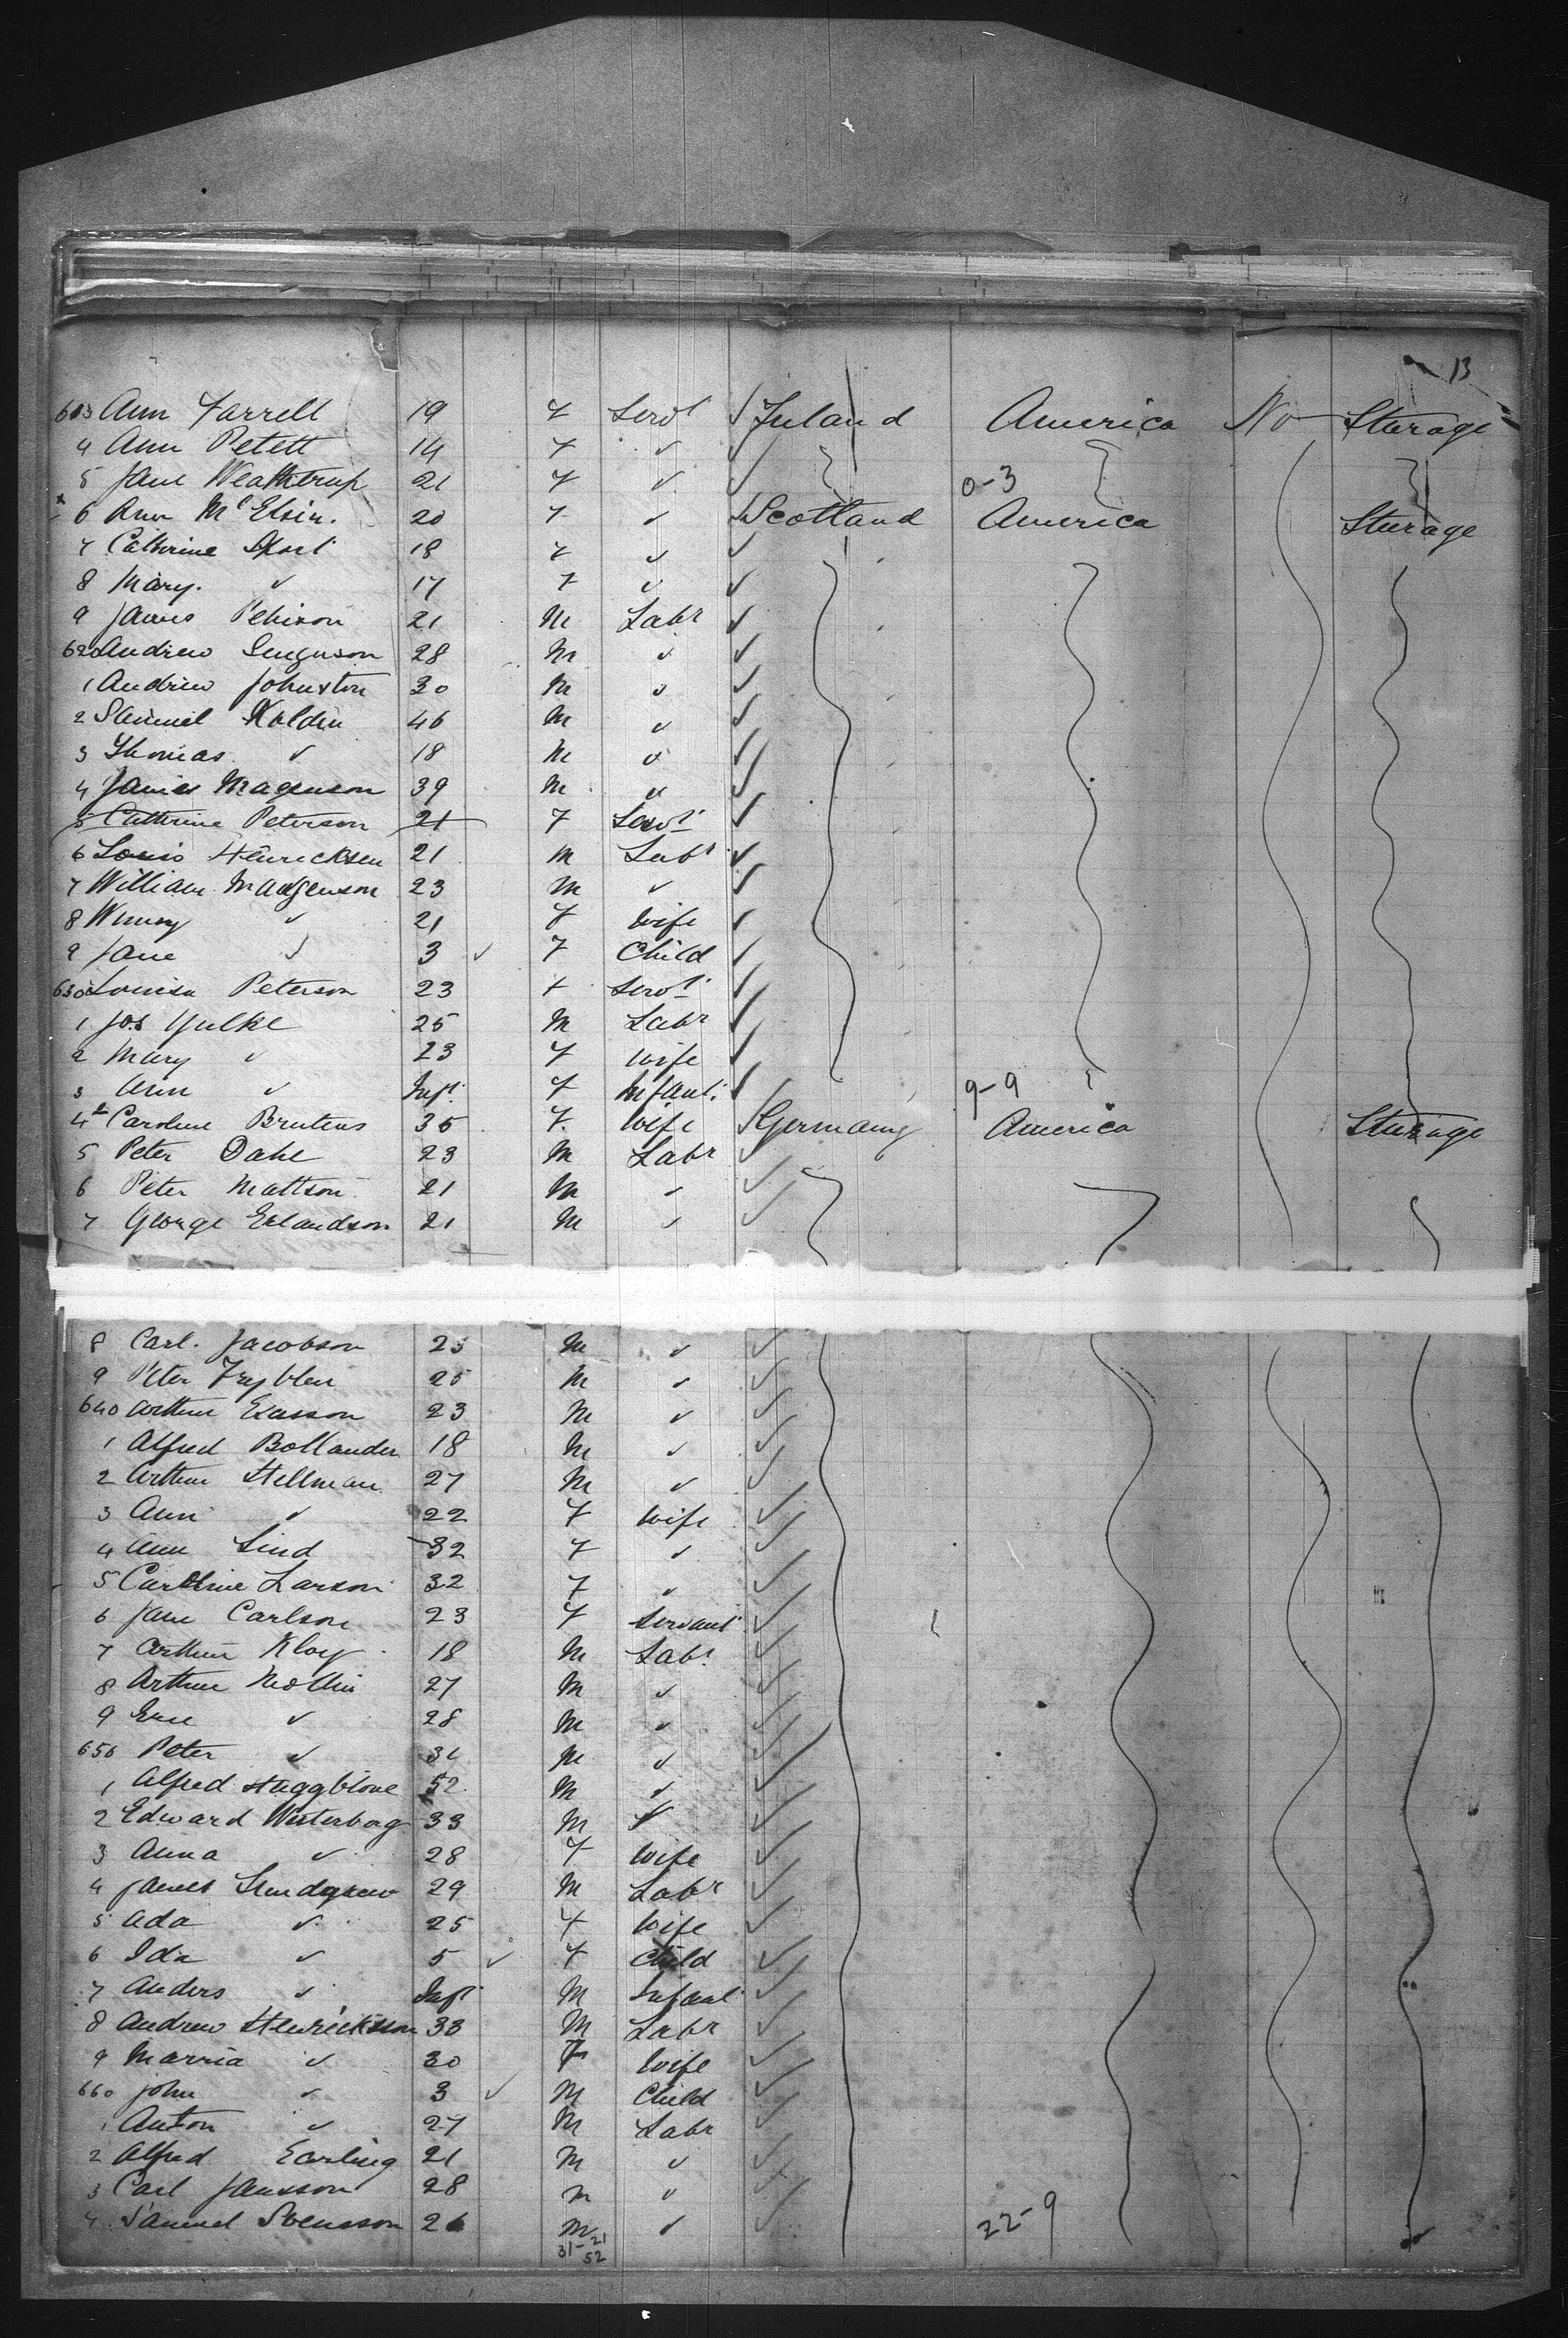 13
613 Ann Farrell 19 F Servt ✓ Ireland America No Sterage
4 Ann Petett 14 F ✓ ✓
5 Jane Weathrup 21 F ✓ ✓ 0-3
6 Ann McElsin. 20 F ✓ ✓ Scotland America Sterage
7 Catherine Short 18 F ✓ ✓
8 Mary. ✓ 17 F ✓ ✓
9 James 21 M Labr ✓
620 Andrew Ferguson 28 M ✓ ✓
1 Andrew Johnston 30 M ✓ ✓
2 Samuel Kolden 46 M ✓ ✓
3 Thomas ✓ 18 M ✓ ✓
4 James Magnuson 39 M ✓ ✓
5 Cathrine Peterson 21 F Servt ✓
6 Louis Henricksen 21 M Labr ✓
7 William Madgenson 23 M ✓ ✓
8 Winny ✓ 21 F Wife ✓
9 Jane ✓ 3 ✓ F Child ✓
630 Louisa Peterson 23 F Servt ✓
1 Jos Yulke 25 M Labr ✓
2 Mary ✓ 23 F Wife ✓
3 Ann ✓ Inft. F Infant. ✓ 9-9
4 Caroline Brutens 35 F. Wife ✓ Germany America Sterage
5 Peter Dahl 23 M Labr ✓
6 Peter Mattson 21 M ✓ ✓
7 George Erlandson 21 M ✓ ✓
8 Carl. Jacobson 25 M ✓ ✓
9 Peter 25 M ✓ ✓
640 Arthur Exasson 23 M ✓ ✓
1 Alfred Bollander 18 M ✓ ✓
2 Arthur Hellman 27 M ✓ ✓
3 Ann ✓ 22 F Wife ✓
4 Ann Lind 32 F ✓ ✓
5 Carthrine Larson 32 F ✓ ✓
6 Jane Carlson 23 F Servant ✓
7 Arthur Kloy 18 M Labr ✓
8 Arthur 27 M ✓ ✓
9 Eric ✓ 28 M ✓ ✓
650 Peter ✓ 31 M ✓ ✓
1 Alfred Haggblone 52 M ✓ ✓
2 Edward Westerborg 33 M ✓ ✓
3 Anna ✓ 28 F Wife ✓
4 James Lundgrew 29 M Labr ✓
5 Ada ✓ 25 F Wife ✓
6 Ida ✓ 5 ✓ F Child ✓
7 Anders ✓ Inft M Infant ✓
8 Andrew Henrickson 33 M Labr ✓
9 Marria ✓ 30 F Wife ✓
660 John ✓ 3 ✓ M Child ✓
1 Anton ✓ 27 M Labr ✓
2 Alfred Earling 21 M ✓ ✓
3 Carl Jansson 28 M ✓ ✓
4 Samuel Svensson 26 M ✓ ✓ 22-9
31-21
52